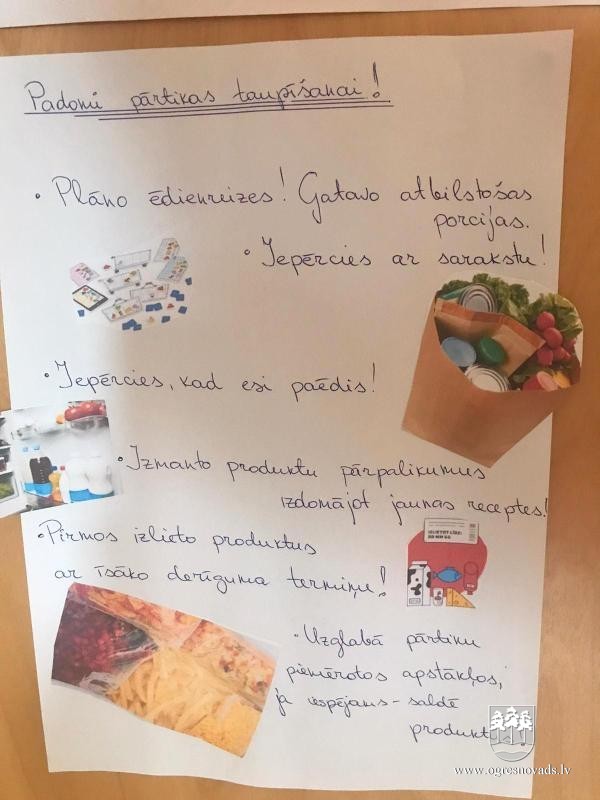 Padomi pārtikas taupīšanai!
• Plāno ēdienreizes! Gatavo atbilstošas
porcijas.
• Iepērcies ar sarakstu!
• Iepērcies, kad esi paēdis!
• Izmanto produktu pārpalikumus
izdomājot jaunas receptes!
• Pirmos izlieto produktus
ar īsāko derīguma termiņu!
IZLIETOT LĪDZ:
DD MM GG
• Uzglabā pārtiku
piemērotos apstākļos,
ja iespējams - saldē
www.ogresnovads.lv